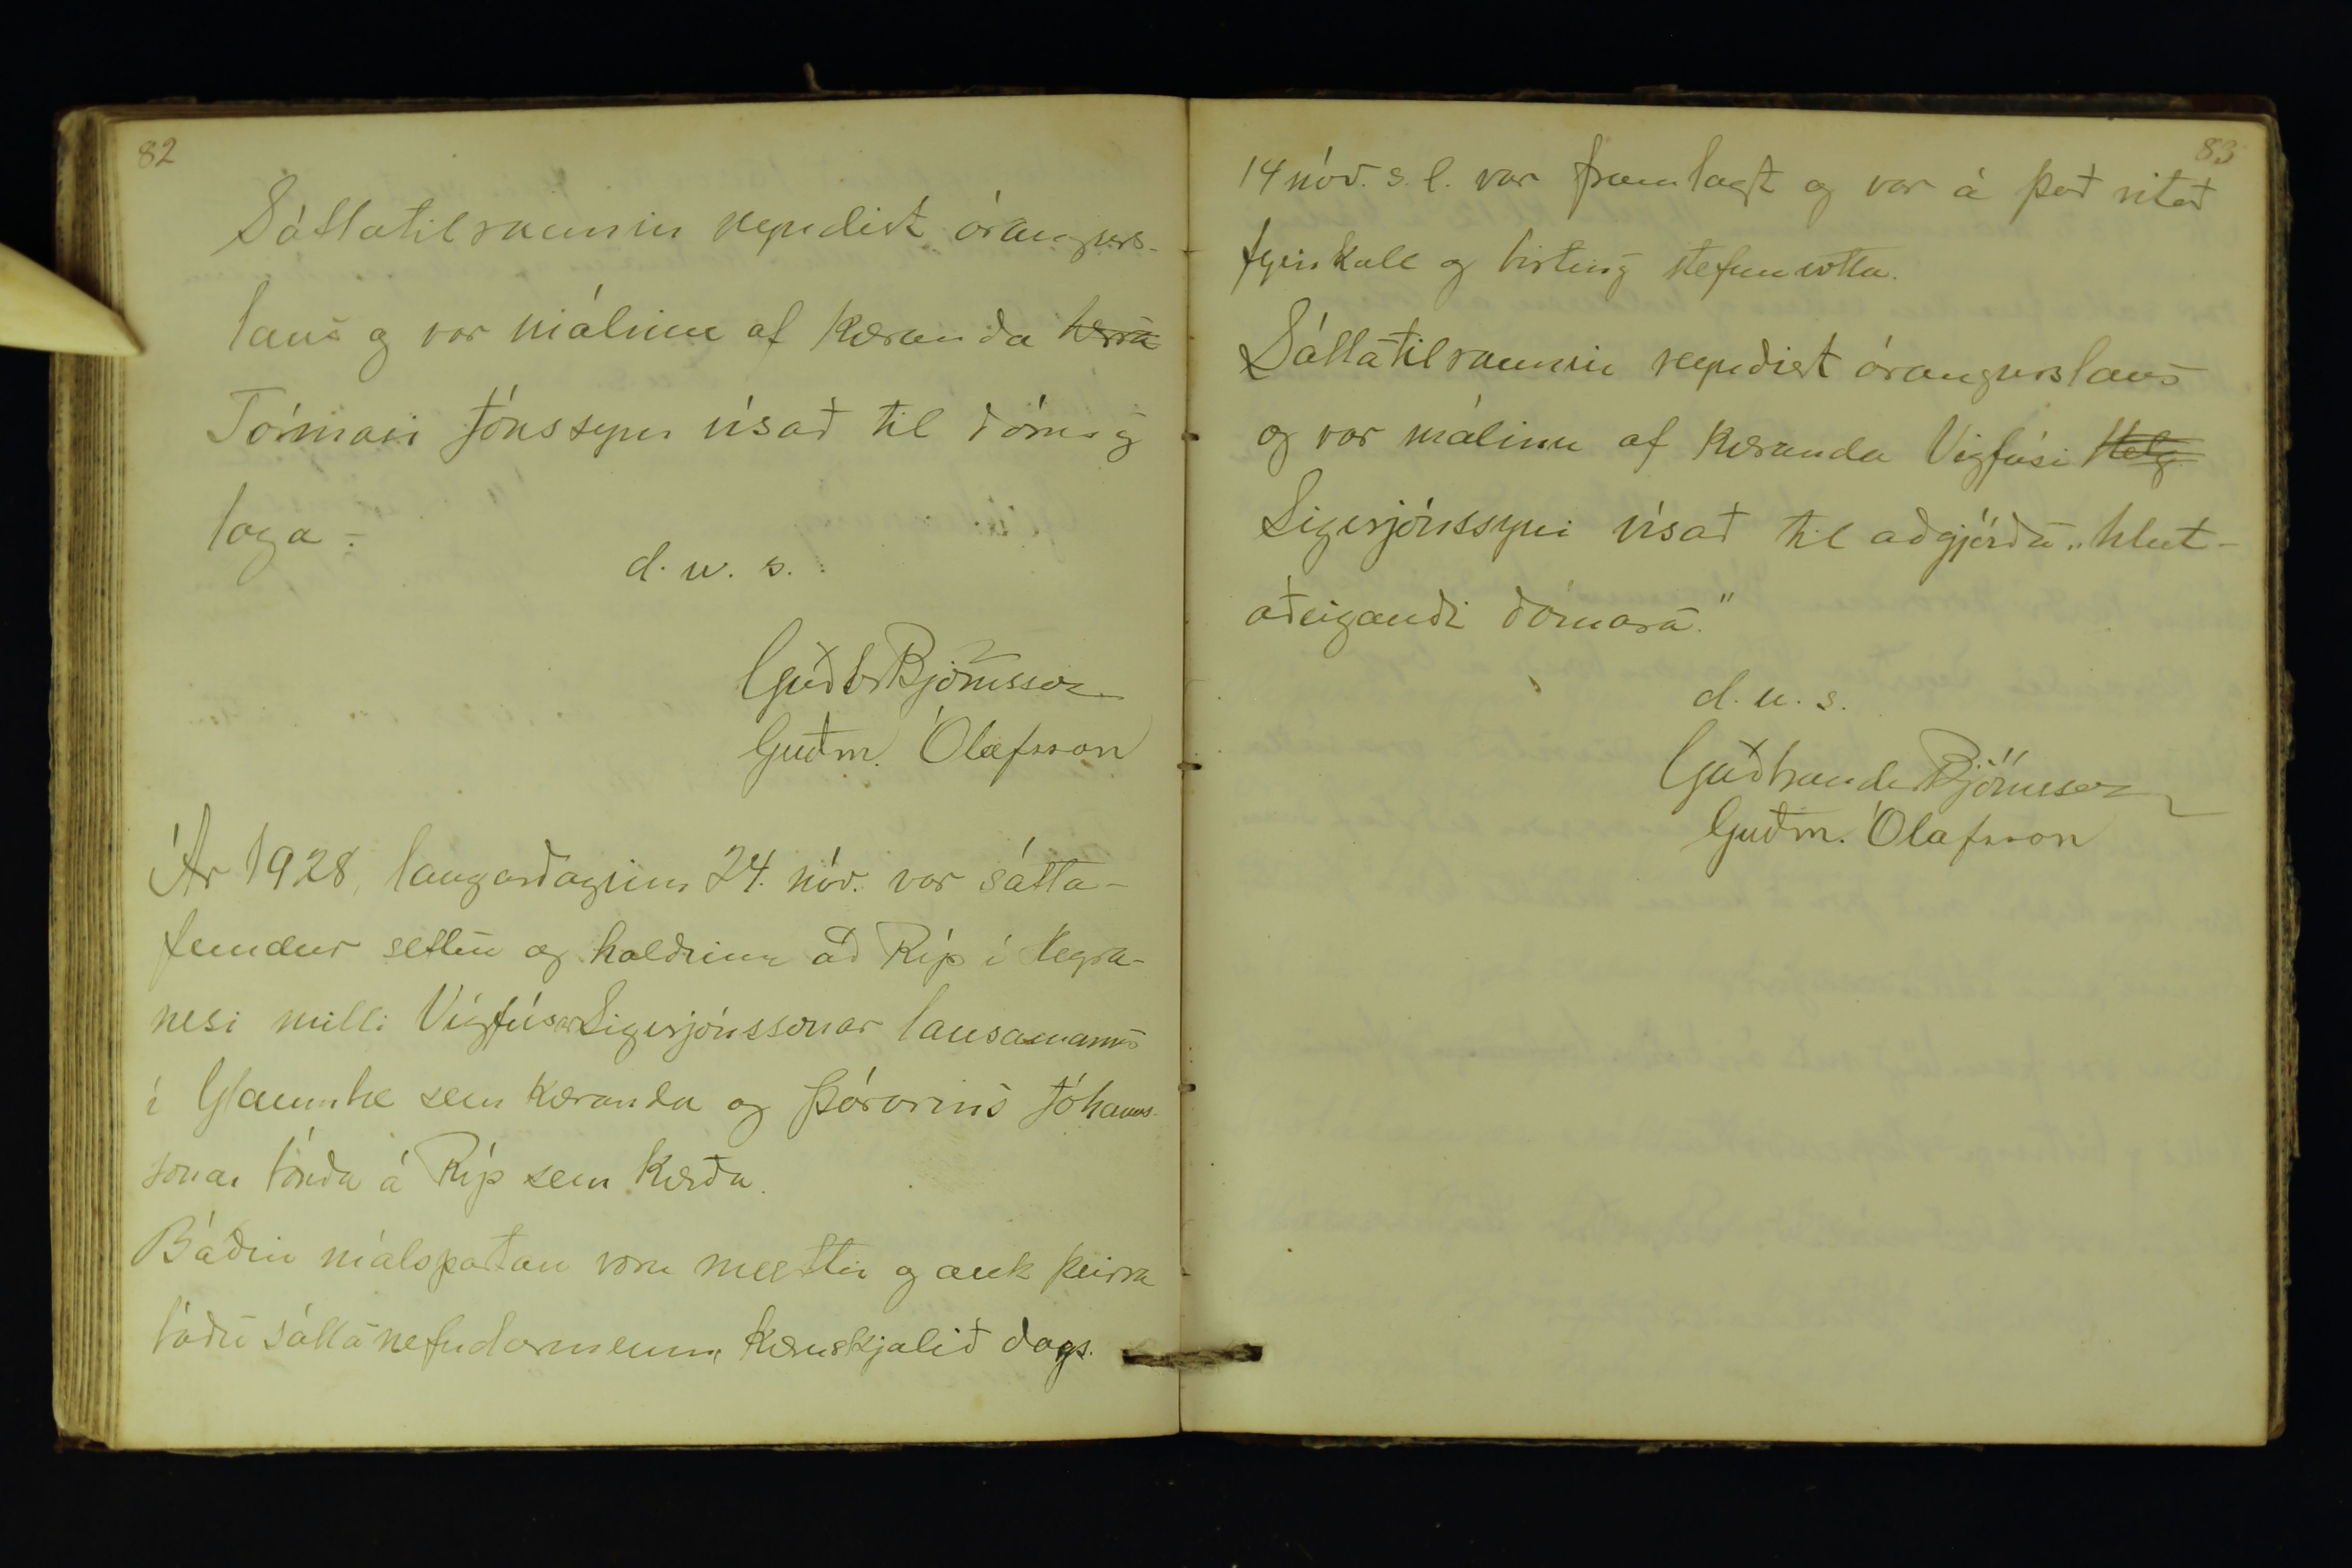 82
Sáttatilraunin reyndist árangurs-
laus og var málinu af kæranda herra
Tómasi Jónssyni vísað til dóms og
laga.
d. u. s.
Guðbr Björnsson
Guðm. Ólafsson
Ár 1928, laugardaginn 24. nóv. var sátta-
fundur settur og haldinn að Ríp í Hegra-
nesi milli Vigfúsar Sigurjónssonar lausamanns
í Glaumbæ sem kæranda og Þórarins Jóhanns-
sonar bónda á Ríp sem kærða.
Báðir málspartar voru mættir og auk þeirra
báðir sáttanefndarmenn, kæruskjalið dags.
83
14 nóv. s. l. var framlagt og var á það ritað
fyrirkall og birting stefnuvotta.
Sáttatilraunin reyndist árangurslaus
og var málinu af kæranda Vigfúsi Helg
Sigurjónssyni vísað til aðgjörða „hlut-
aðeigandi dómara."
d. u. s.
Guðbrandur Björnsson
Guðm. Ólafsson